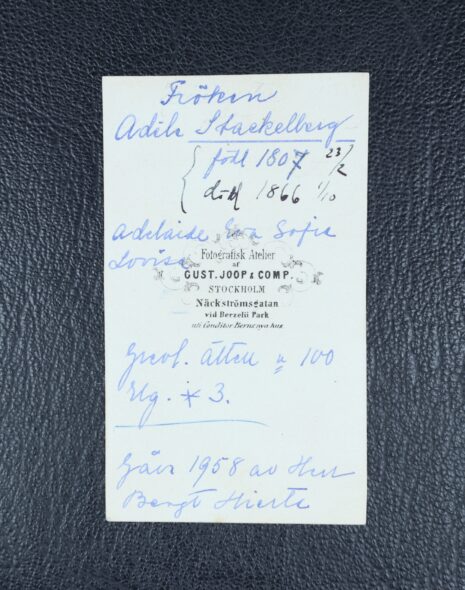 Fröken
Adile Stackelberg
född 1807 23/2
död 1866 1/10
Adelaide Eva Sofia
Lovisa
Fotografisk Atelier
af
GUST. JOOP & COMP.
STOCKHOLM
Näckströmsgatan
vid Berzelii Park
uti Conditor Berns nya hus
Grevl. ätten n 100
Elg. * 3.
Gåva 1958 av Herr
Bengt Hierta